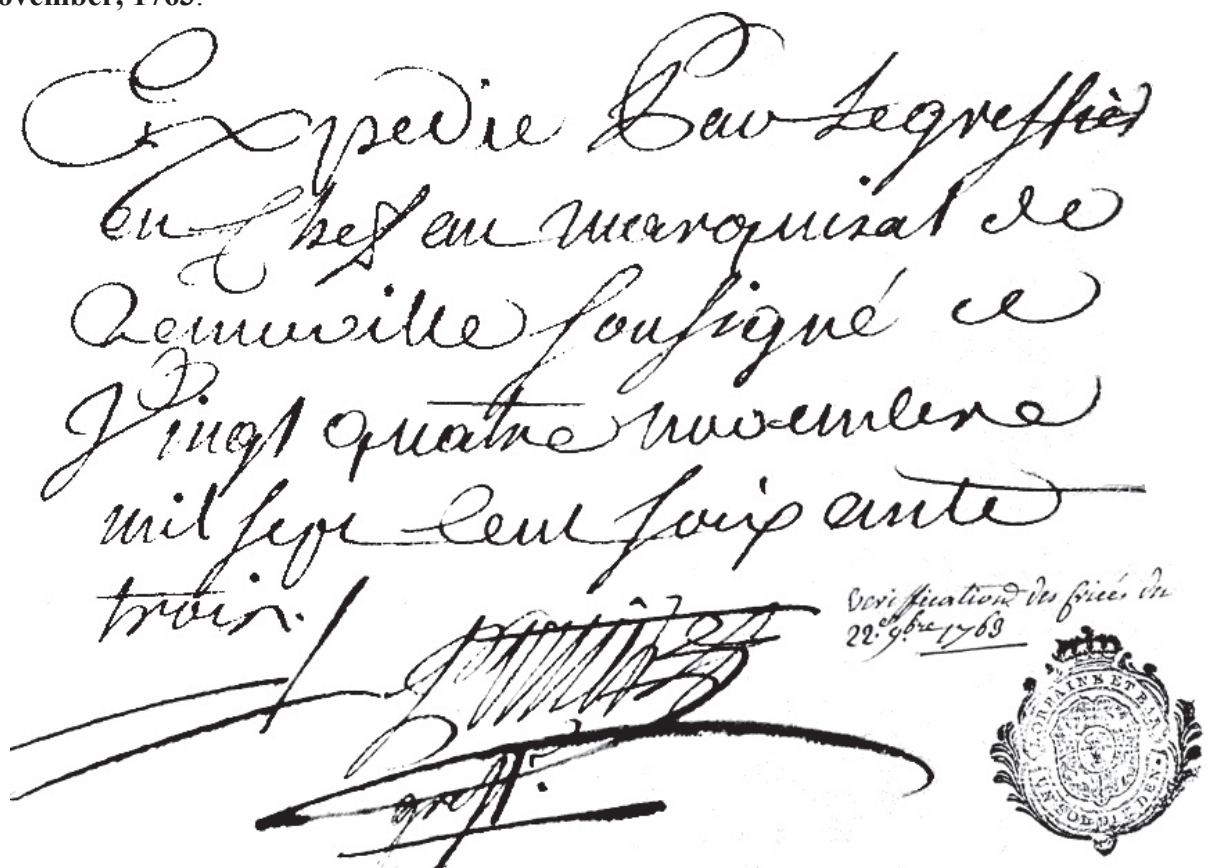 ovember, 1763.
Expedie Par Le greffier
en Chef au marquisat de
soussigné ce
Vingt quatre novembre
mil sept Cent soixante
trois.
Veriffication des du
22.e 9.bre 1763
greff.
LORRAINE ET BAR